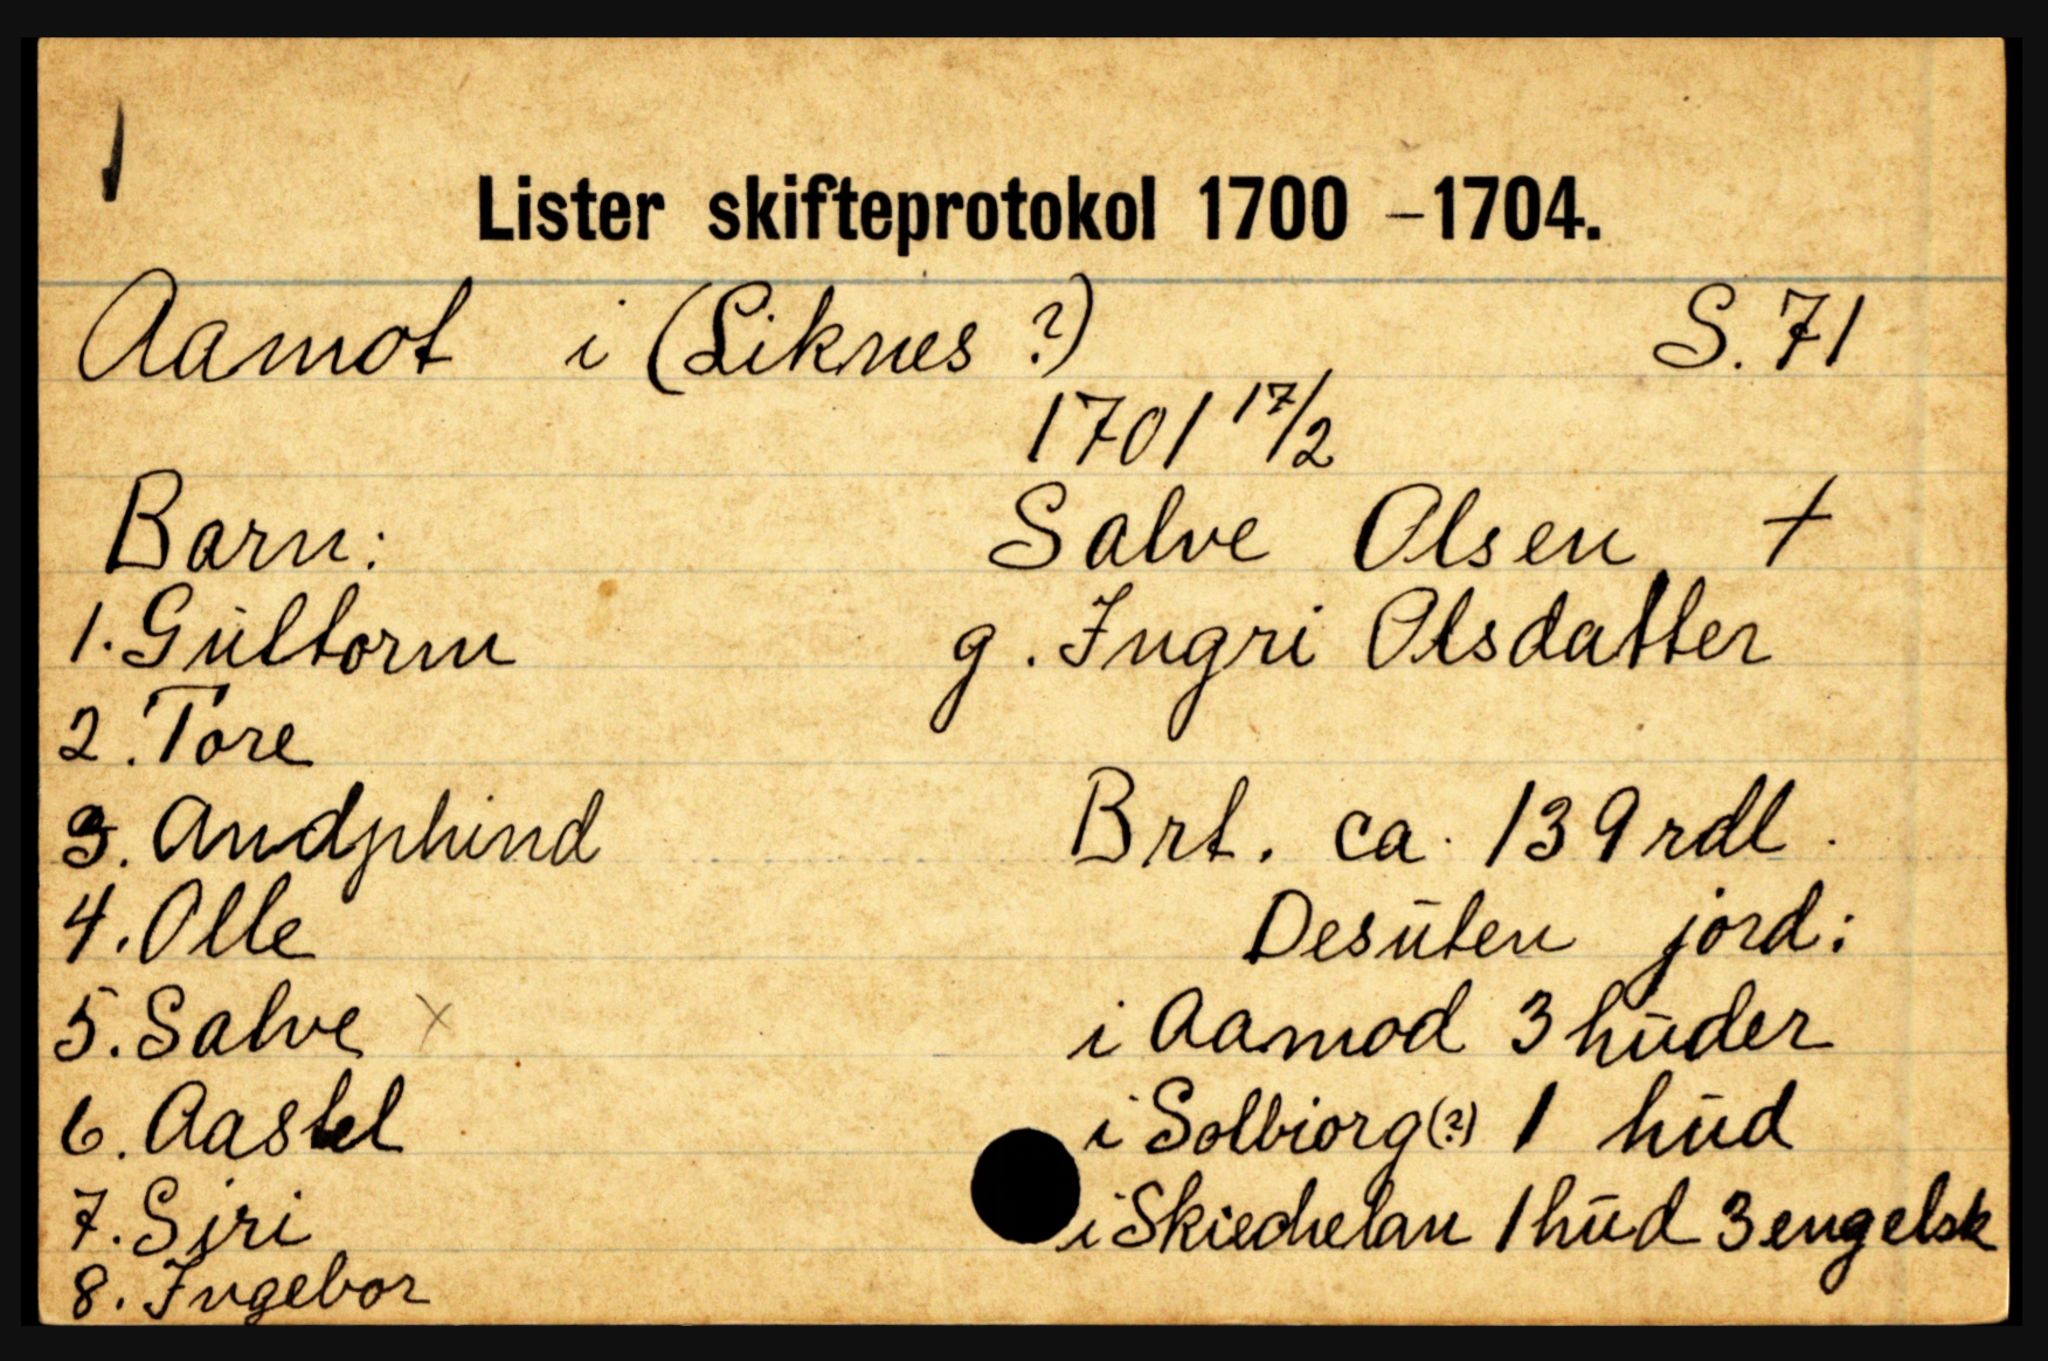 Lister skifteprotokol 1700 – 1704.
Aamot i (Liknes ?) S. 71
1701 17/2
Barn: Salve Olsen †
1. Gūltorm g. Ingri Olsdatter
2. Tore
3. Andphind Brt. ca. 139 rdl.
4. Olle Desūten jord:
5. Salve x i Aamod 3 hūder
6. Aastel i Solbiorg(?) 1 hūd
7. Siri i Skiechelan 1 hūd 3 engelsk
8. Ingebor